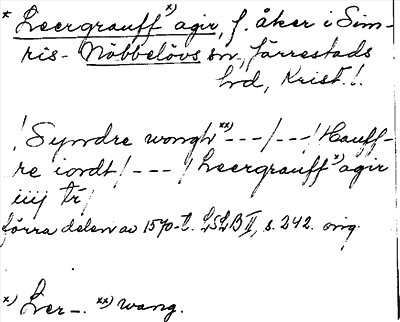 * Leergrauff x) agir, f. åker i Sim-
ris-Nöbbelövs sn, Järrestads
hd, Krist. l.
/Syndre wongh xx) ---/---/Hauff-
re iordt/---/Leergrauff x) agir
iiij tr/
förra delen av 1570-t. LSLB II, s. 242. orig.
x) Ler-. xx) wang.